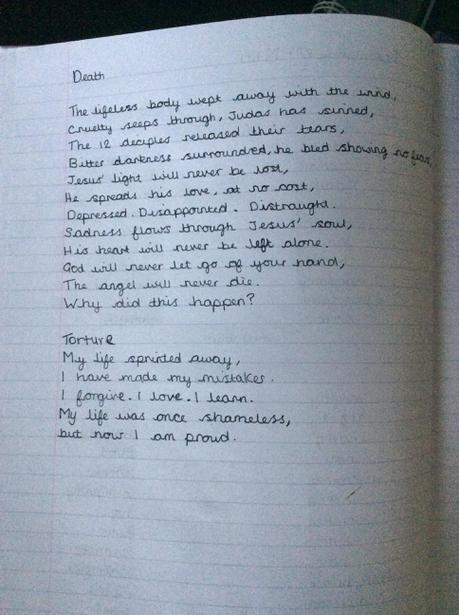 Death
The lifeless body wept away with the wind,
Cruelty seeps through, Judas has sinned,
The 12 deciples released their tears,
Bitter darkness surrounded, he bled showing no fear,
Jesus' light will never be lost,
He spreads his love, at no cost,
Depressed. Disappointed. Distraught.
Sadness flows through Jesus' soul,
His heart will never be left alone.
God will never let go of your hand,
The angel will never die.
Why did this happen?
Torture
My life sprinted away,
I have made my mistakes.
I forgive. I love. I learn.
My life was once shameless,
but now I am proud.